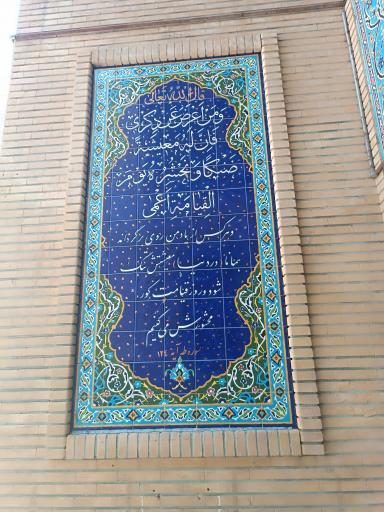 قال الله تعالی
و من اعرض عن ذکری
فان له معیشة
ضنکا و نحشره یوم
القیامة اعمی
و هرکس از یاد من روی برگرداند
همانا در دنیا معیشتش تنگ
شود و روز قیامت کور
محشورش می کنیم
سوره طه آیه ۱۲۴